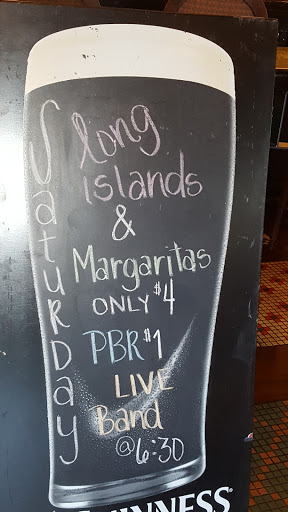 Saturday
Long
islands
&
Margaritas
ONLY $4
PBR $1
LIVE
Band
@6:30
GUINNESS